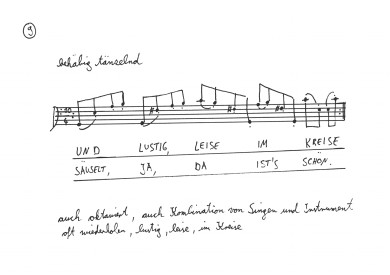 9
behäbig tänzelnd
UND LUSTIG, LEISE IM KREISE
SÄUSELT, JA, DA IST'S SCHÖN.
auch oktaviert, auch Kombination von Singen und Instrument
oft wiederholen, lustig, leise, im Kreise